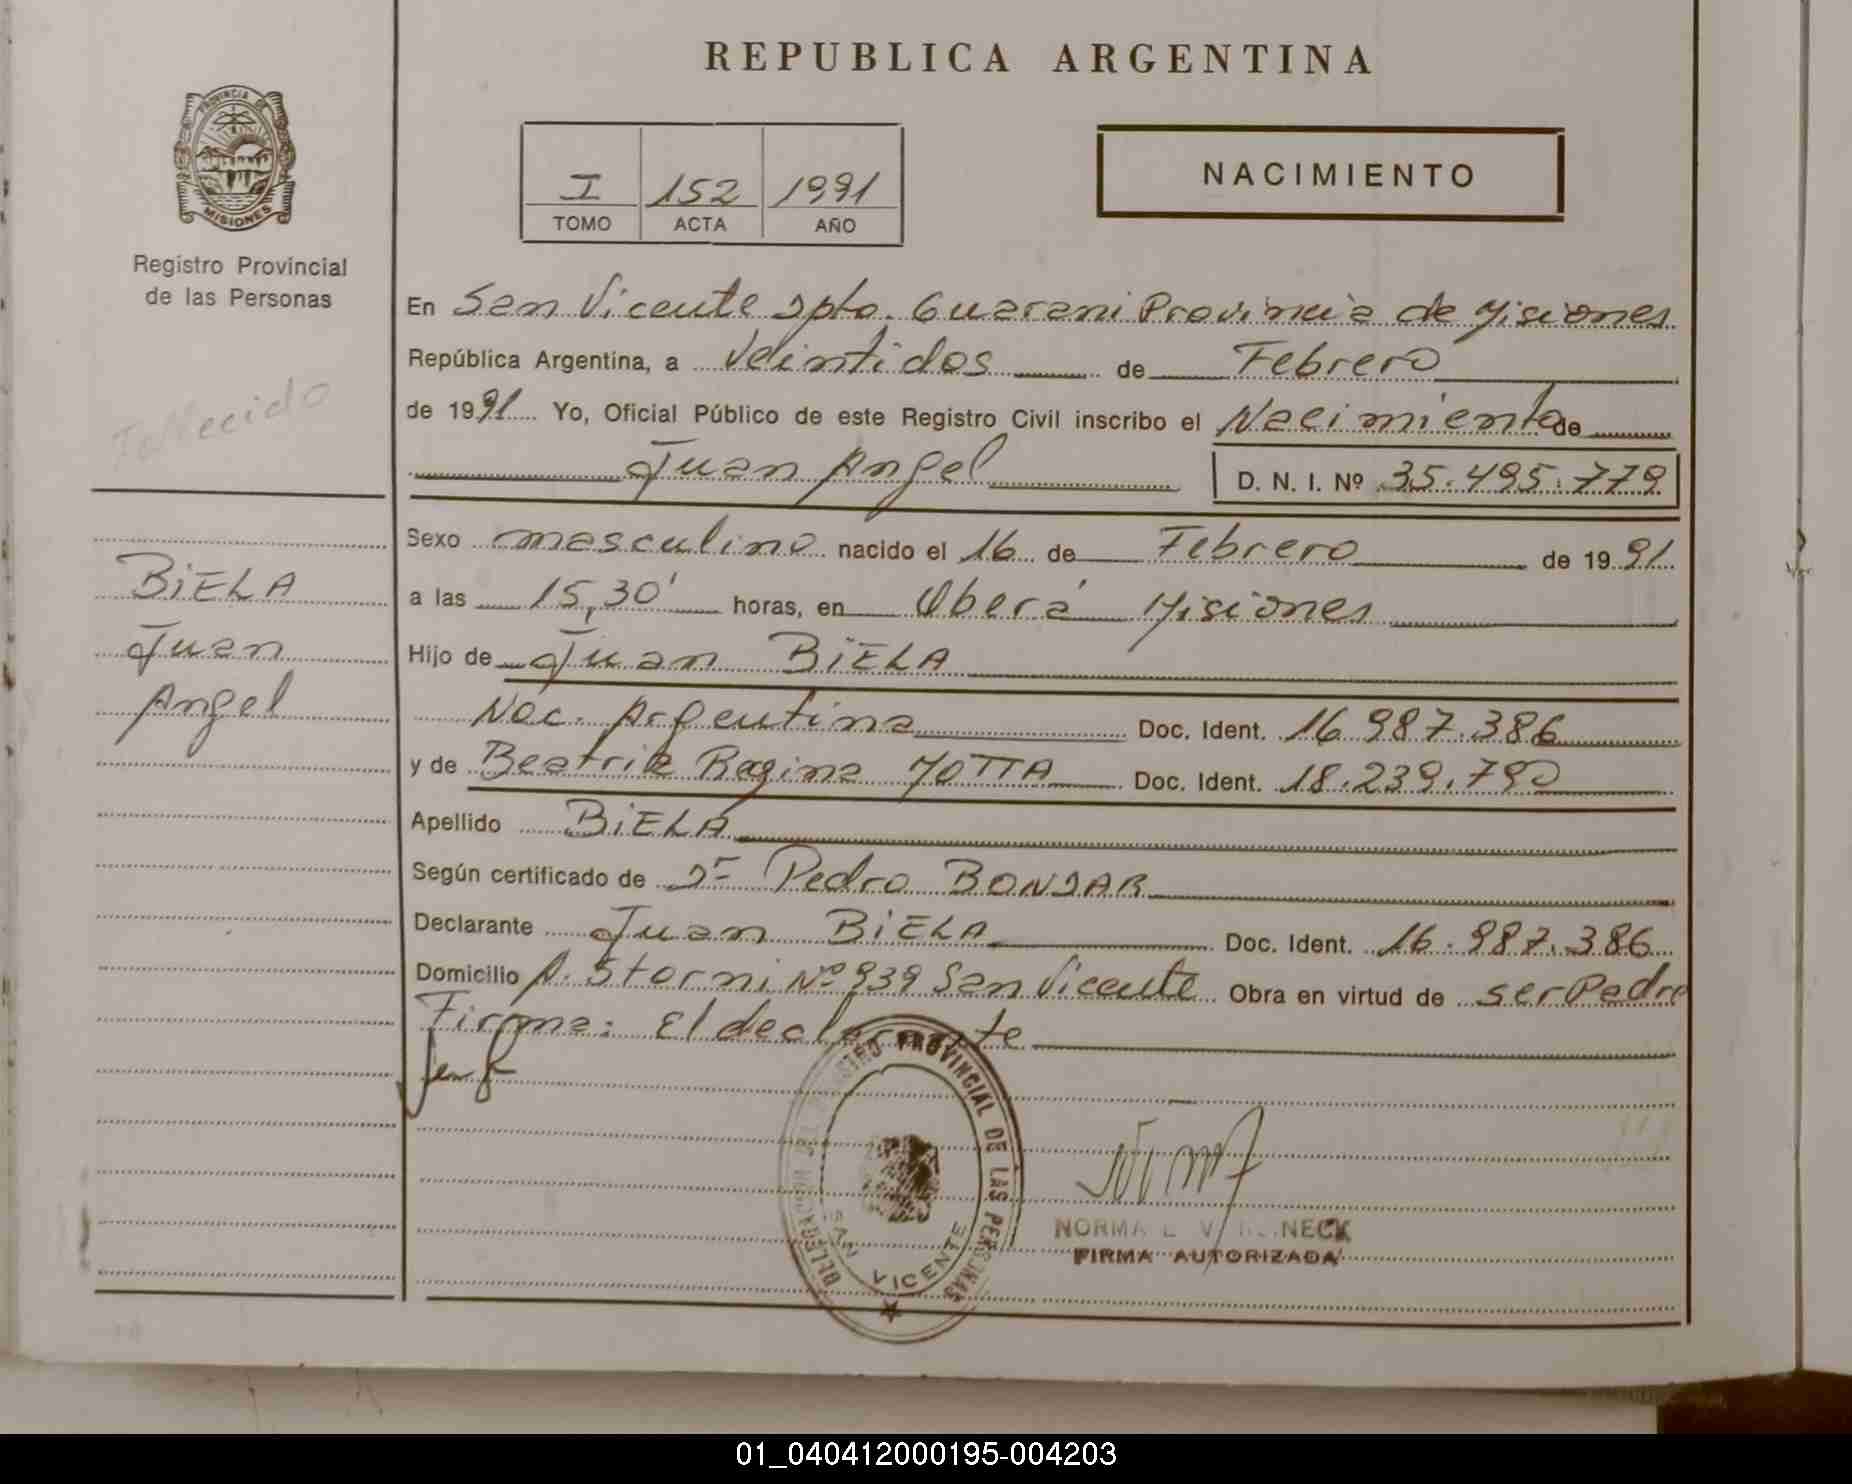 REPUBLICA ARGENTINA
PROVINCIA DE
MISIONES
Registro Provincial
de las Personas
I 152 1991
TOMO ACTA AÑO
NACIMIENTO
Fallecido
BiELA
Juan
Angel
En San Vicente Dpto. Guarani Provincia de Misiones
República Argentina, a Veintidos de Febrero
de 1991 Yo, Oficial Público de este Registro Civil inscribo el Nacimiento de
Juan Angel D. N. I. Nº 35.495.779
Sexo masculino nacido el 16 de Febrero de 1991
a las 15,30' horas, en Oberá Misiones
Hijo de Juan BiELA
Nac. Argentina Doc. Ident. 16.987.386
y de Beatriz Regina MOTTA Doc. Ident. 18.239.790
Apellido BiELA
Según certificado de Dr Pedro BONDAR
Declarante Juan BiELA Doc. Ident. 16.987.386
Domicilio A. Storni Nº 939 San Vicente Obra en virtud de ser Padre
Firma: El declarante
DELEGACION DEL REGISTRO PROVINCIAL DE LAS PERSONAS
SAN VICENTE
NORMA NECK
FIRMA AUTORIZADA
01_040412000195-004203